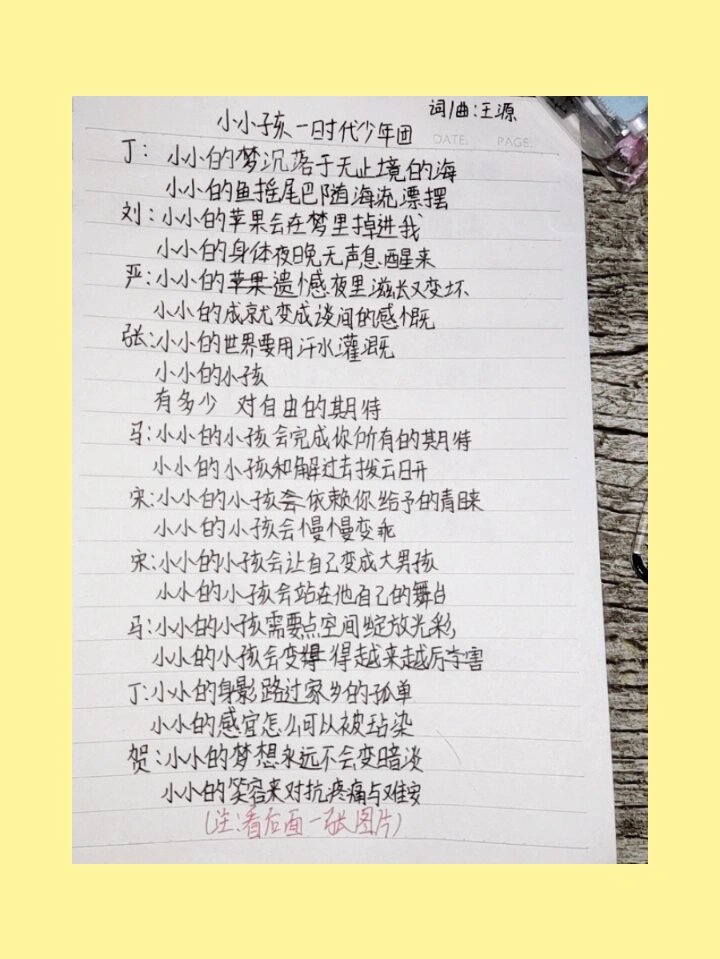 词/曲:王源
小小孩—时代少年团
DATE. PAGE.
丁: 小小的梦沉落于无止境的海
小小的鱼摇尾巴随海流漂摆
刘:小小的苹果会在梦里掉进我
小小的身体夜晚无声息醒来
严:小小的苹果遗憾夜里滋长又变坏
小小的成就变成谈间的感慨
张:小小的世界要用汗水灌溉
小小的小孩
有多少 对自由的期待
马:小小的小孩会完成你所有的期待
小小的小孩和解过去拨云日开
宋:小小的小孩会依赖你给予的青睐
小小的小孩会慢慢变乖
宋:小小的小孩会让自己变成大男孩
小小的小孩会站在他自己的舞台
马:小小的小孩需要点空间绽放光彩,
小小的小孩会变得得越来越厉害
丁:小小的身影路过家乡的孤单
小小的感官怎么可以被玷染
贺:小小的梦想永远不会变暗淡
小小的笑容来对抗疼痛与难安
(注:看后面一张图片)